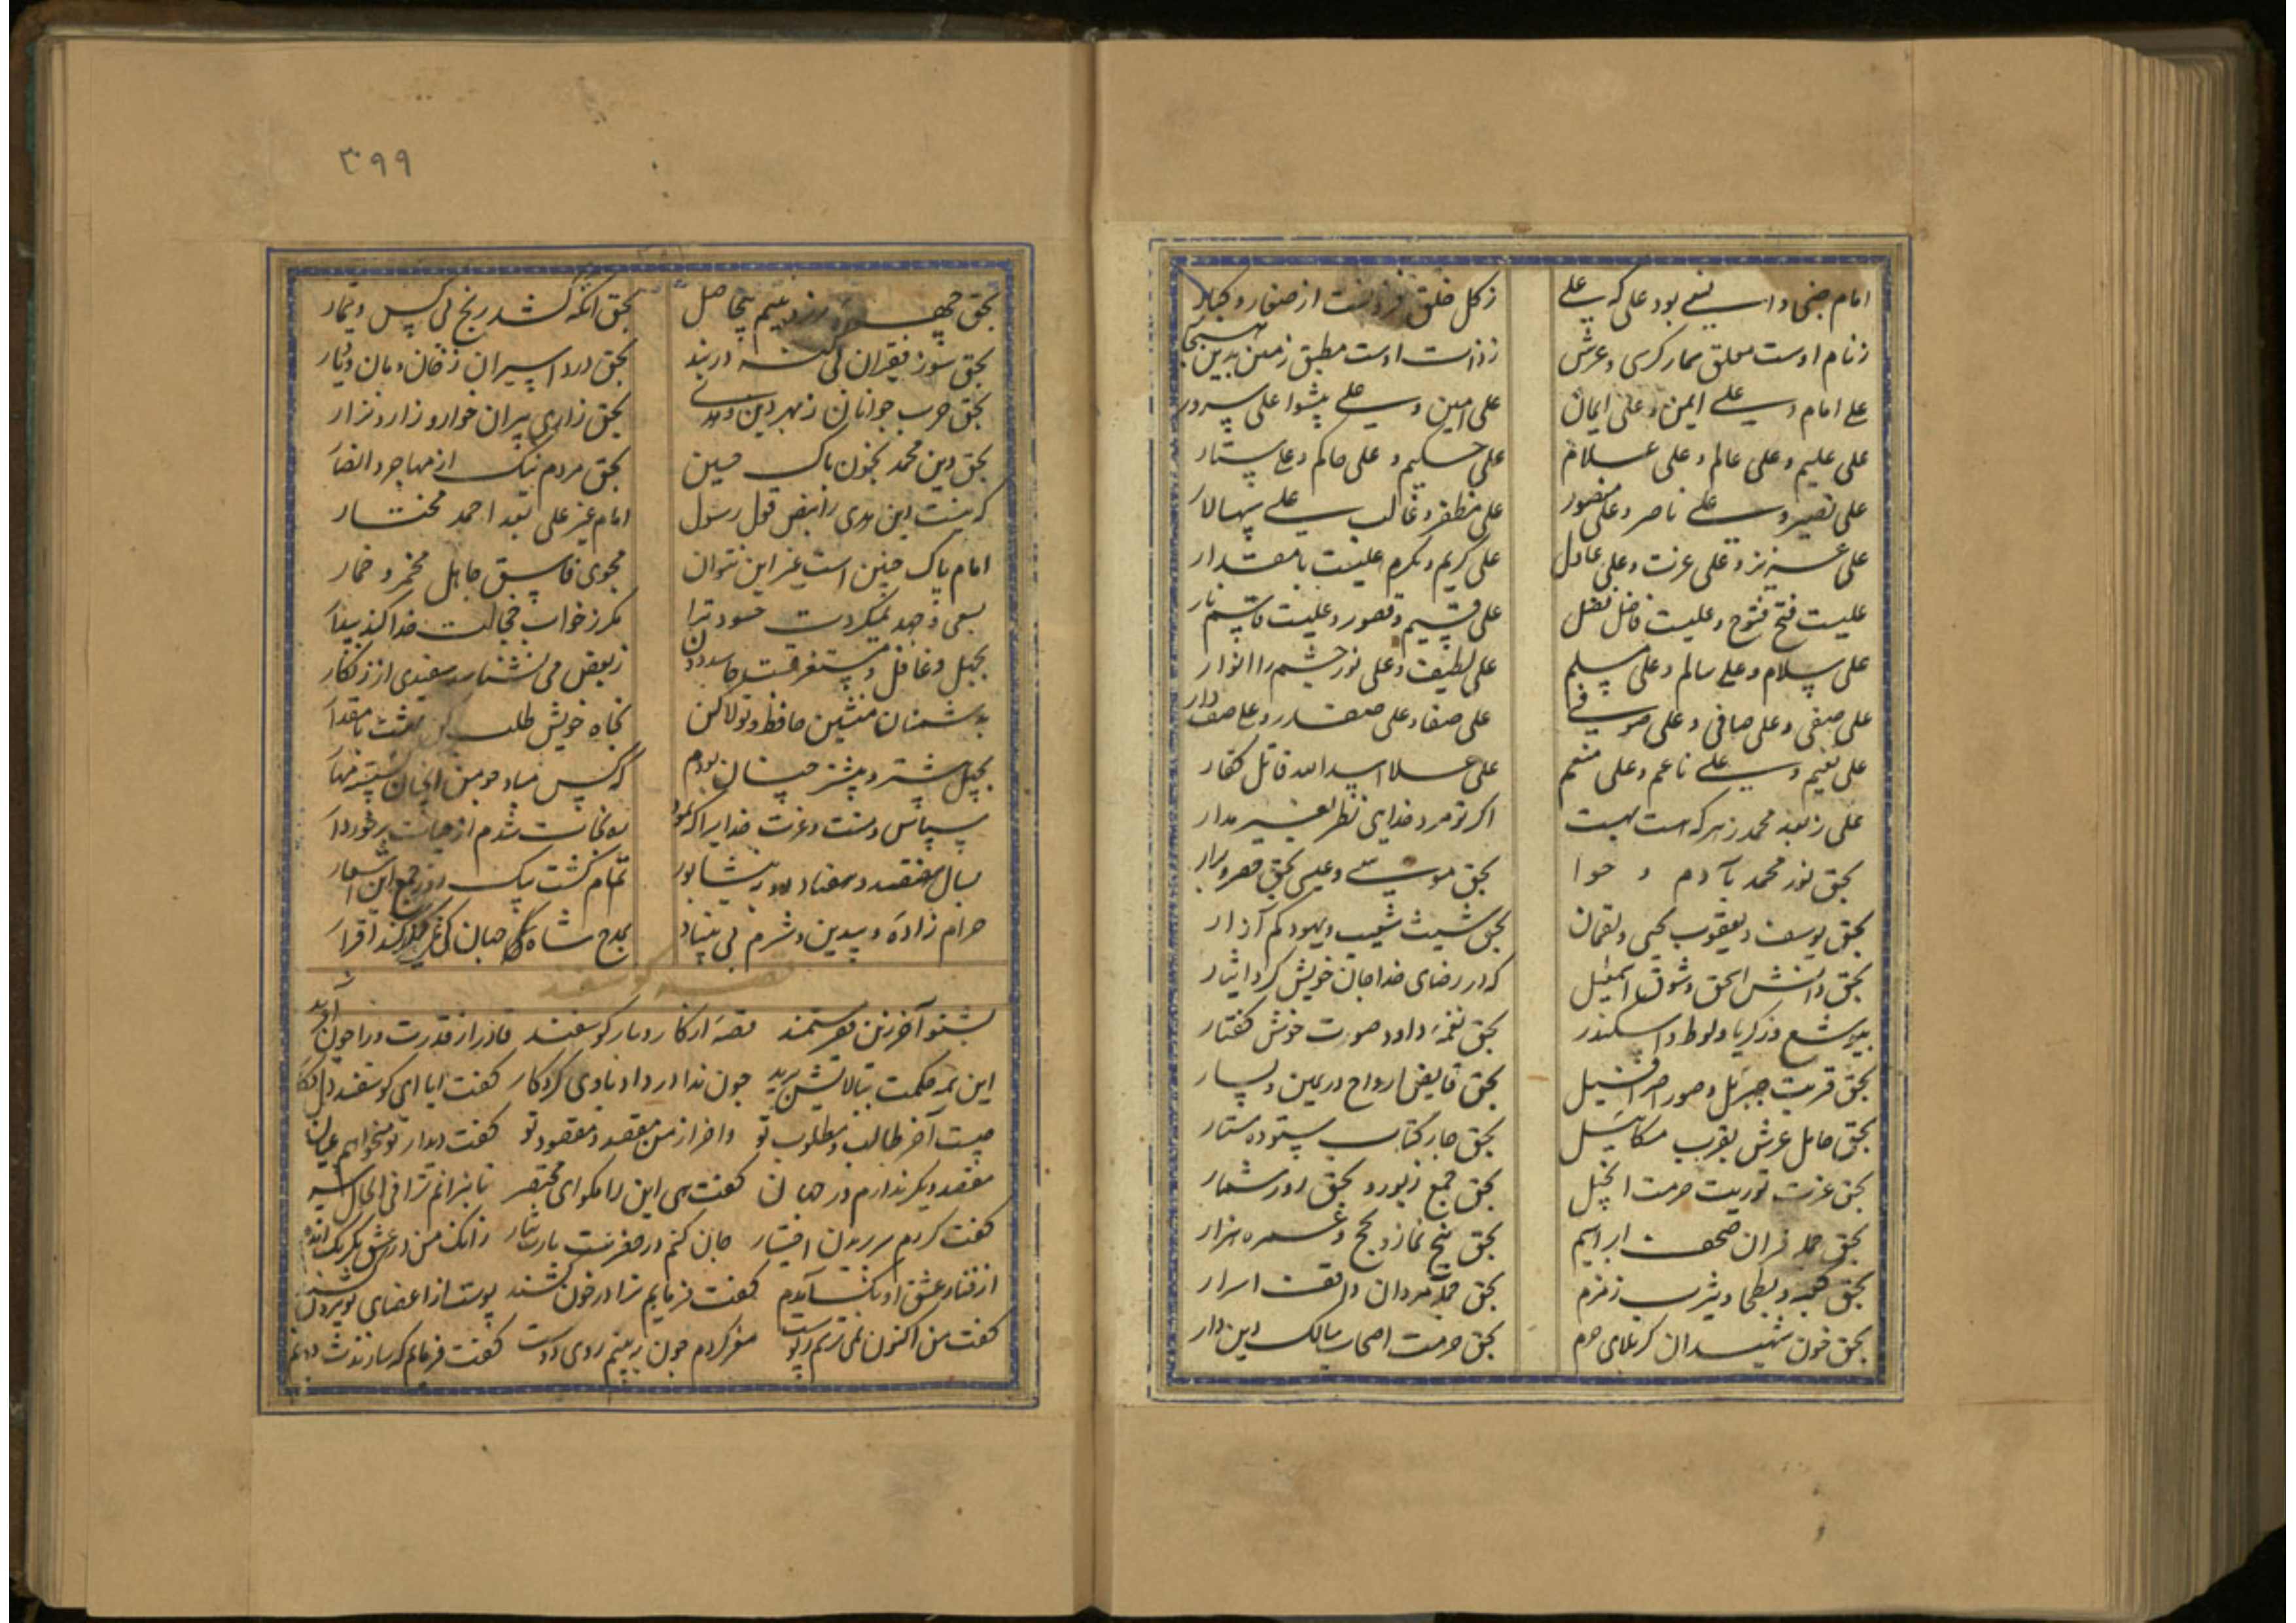 امام جنی و انسی بود علی که علی
ز کل خلق فزونست از صغار و کبار
ز نام اوست معلق سما و کرسی و عرش
ز ذات اوست مطبق زمین بدین هنجار
علی امام و علی ایمن و علی ایمان
علی امین و علی پیشوا علی سردار
علی علیم و علی عالم و علی علام
علی حکیم و علی حاکم و علی ستار
علی نصیر و علی ناصر و علی منصور
علی مظفر و غالب علی سپهسالار
علی عزیز و علی عزت و علی عادل
علی کریم و مکرم علیست با مقدار
علیست فتح فتوح و علیست فاضل فضل
علی قسیم و قصور و علیست قاسم نار
علی سلام و علی سالم و علی مسلم
علی لطیف و علی نور چشم را انوار
علی صفی و علی صافی و علی صوفی
علی صفا و علی صفدر و علی صف دار
علی نعیم و علی ناعم و علی منعم
علی علا اسدالله قاتل کفار
علی ز بعد محمد ز هر که هست بهست
اگر تو مرد خدایی نظر بغیر مدار
بحق نور محمد بآدم و حوا
بحق موسی و عیسی بحق
بحق یوسف و یعقوب یحیی و لقمان
بحق شیث شعیب و بهود کم آزار
بحق دانش اسحق و شوق اسمعیل
که در رضای خدا جان خویش کرد ایثار
بیوشع و زکریا و لوط و اسکندر
بحق نغمه داود صورت خوش گفتار
بحق قربت جبریل و صور اسرافیل
بحق قابض ارواح در یمین و یسار
بحق حامل عرش بقرب میکاییل
بحق چار کتاب ستوده ستار
بحق عزت توریت حرمت انجیل
بحق جمع زبور و بحق روز شمار
بحق جمله قران صحف ابراهیم
بحق پنج نماز و بحج و عمره هزار
بحق کعبه و بطحا و یثرب و زمزم
بحق جمله مردان واقف اسرار
بحق خون شهیدان کربلای حرم
بحق حرمت اصحاب سالک دین دار
۳۹۹
بحق
بحق آنکه کشد رنج بی کس و تیمار
بحق سوز فقیران بی گنه در بند
بحق درد اسیران ز خان و مان و تبار
بحق حرب جوانان ز بهر دین و هدی
بحق زاری پیران خوار و زار و نزار
بحق دین محمد بخون پاک حسین
بحق مردم نیک از مهاجر و انصار
که نیست این هدی را بنص قول رسول
امام غیر علی بعد احمد مختار
امام پاک چنین است غیر این نتوان
مجوی فاسق جاهل مخمر و خمار
بسعی و جهد نمیکردت حسود ترا
مگر ز خواب خجالت خدا کند بیدار
بجهل و غافل و مستغرقست حاسد دون
ز بغض می نشناسد سفیدی از زنگار
بدشمنان منشین حافظا تولا کن
نجاه خویش طلب کن بهشت با مقدار
بجهل پشتر و پیشتر چنان بودم
که کس مباد چو من آنچنان
سپاس و منت و عزت خدایرا که نمود
ره نجات شدم از حیات برخوردار
بسال هفتصد و هفتاد در نیشابور
تمام گشت بیک روز جمع این اشعار
حرام زاده و بیدین و شرم بی بنیاد
بمدح شاه جهان کی کند اقرار
قصه گوسفند
بشنو آخر زین مستمند قصهٔ از کار و بار گوسفند قادر از قدرت ورا چون آفرید
این همه حکمت ببالایش برید چون ندا در داد بادی کردکار گفت ایا ای گوسفند
چیست آخر طالب و مطلوب تو و آخر از من مقصد و مقصود تو گفت دیدار تو میخواهم عیان
مقصد دیگر ندارم در جهان گفت هی این را مگو ای مختصر تا نبرانم ترا فی الحال سر
گفت کردم سر بریدن اختیار جان کنم در حضرتت یارب نثار زانک من در عشق
عشق او آمدم گفت فرمایم ترا در خون کشند پوست از اعضای تو بیرون کشند
گفت من اکنون نمی ترسم ز پوست مغز کردم چون ببینم روی دوست گفت فرمایم که سازندت